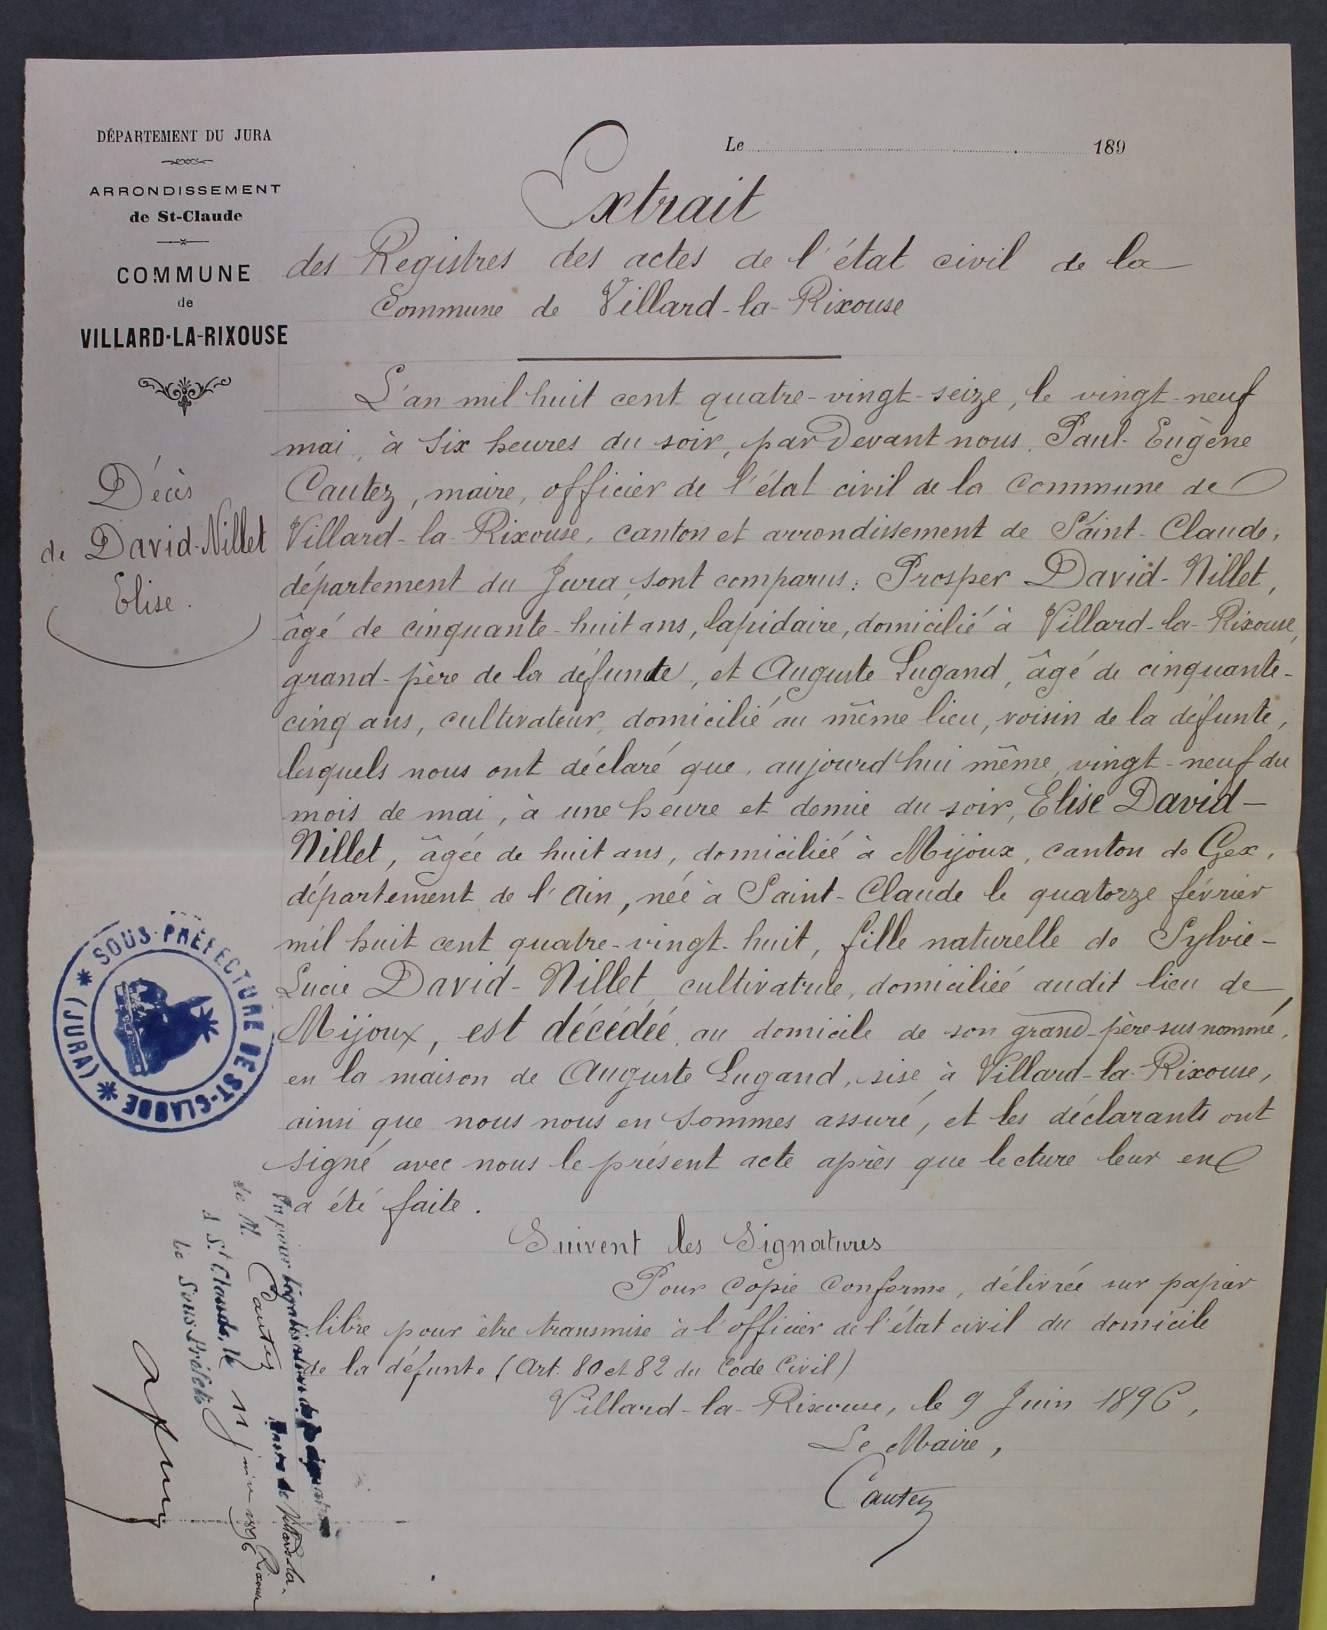 DÉPARTEMENT DU JURA
ARRONDISSEMENT
de St-Claude
COMMUNE
de
VILLARD-LA-RIXOUSE
Le 189
Extrait
des Registres des actes de l'état civil de la
Commune de Villard-la-Rixouse
Décès
de David-Nillet
Elise.
L'an mil huit cent quatre-vingt-seize, le vingt-neuf
mai, à six heures du soir, par Devant nous, Paul-Eugène
Cautez, maire, officier de l'état civil de la Commune de
Villard-la-Rixouse, canton et arrondissement de Saint-Claude,
département du Jura, sont comparus: Prosper David-Nillet,
âgé de cinquante-huit ans, lapidaire, domicilié à Villard-la-Rixouse,
grand-père de la défunte, et Auguste Lugand, âgé de cinquante-
cinq ans, cultivateur, domicilié au même lieu, voisin de la défunte,
lesquels nous ont déclaré que, aujourd'hui même, vingt-neuf du
mois de mai, à une heure et demie du soir, Elise David-
Nillet, âgée de huit ans, domiciliée à Mijoux, canton de Gex,
département de l'Ain, née à Saint-Claude le quatorze février
mil huit cent quatre-vingt-huit, fille naturelle de Sylvie-
Lucie David-Nillet, cultivatrice, domiciliée audit lieu de
Mijoux, est décédée au domicile de son grand-père susnommé,
en la maison de Auguste Lugand, sise à Villard-la-Rixouse,
ainsi que nous nous en sommes assuré, et les déclarants ont
signé avec nous le présent acte après que lecture leur en
a été faite.
Suivent les Signatures
Pour Copie Conforme, délivrée sur papier
libre pour être transmise à l'officier de l'état civil du domicile
de la défunte (Art. 80 et 82 du Code Civil)
Villard-la-Rixouse, le 9 Juin 1896,
Le Maire,
Cautez
* SOUS-PRÉFECTURE DE ST-CLAUDE * (JURA)
Vu pour légalisation de la signature
de M. Cautez Maire de Villard-la-Rixouse
à St Claude, le 11 juin 1896
Le Sous-Préfet